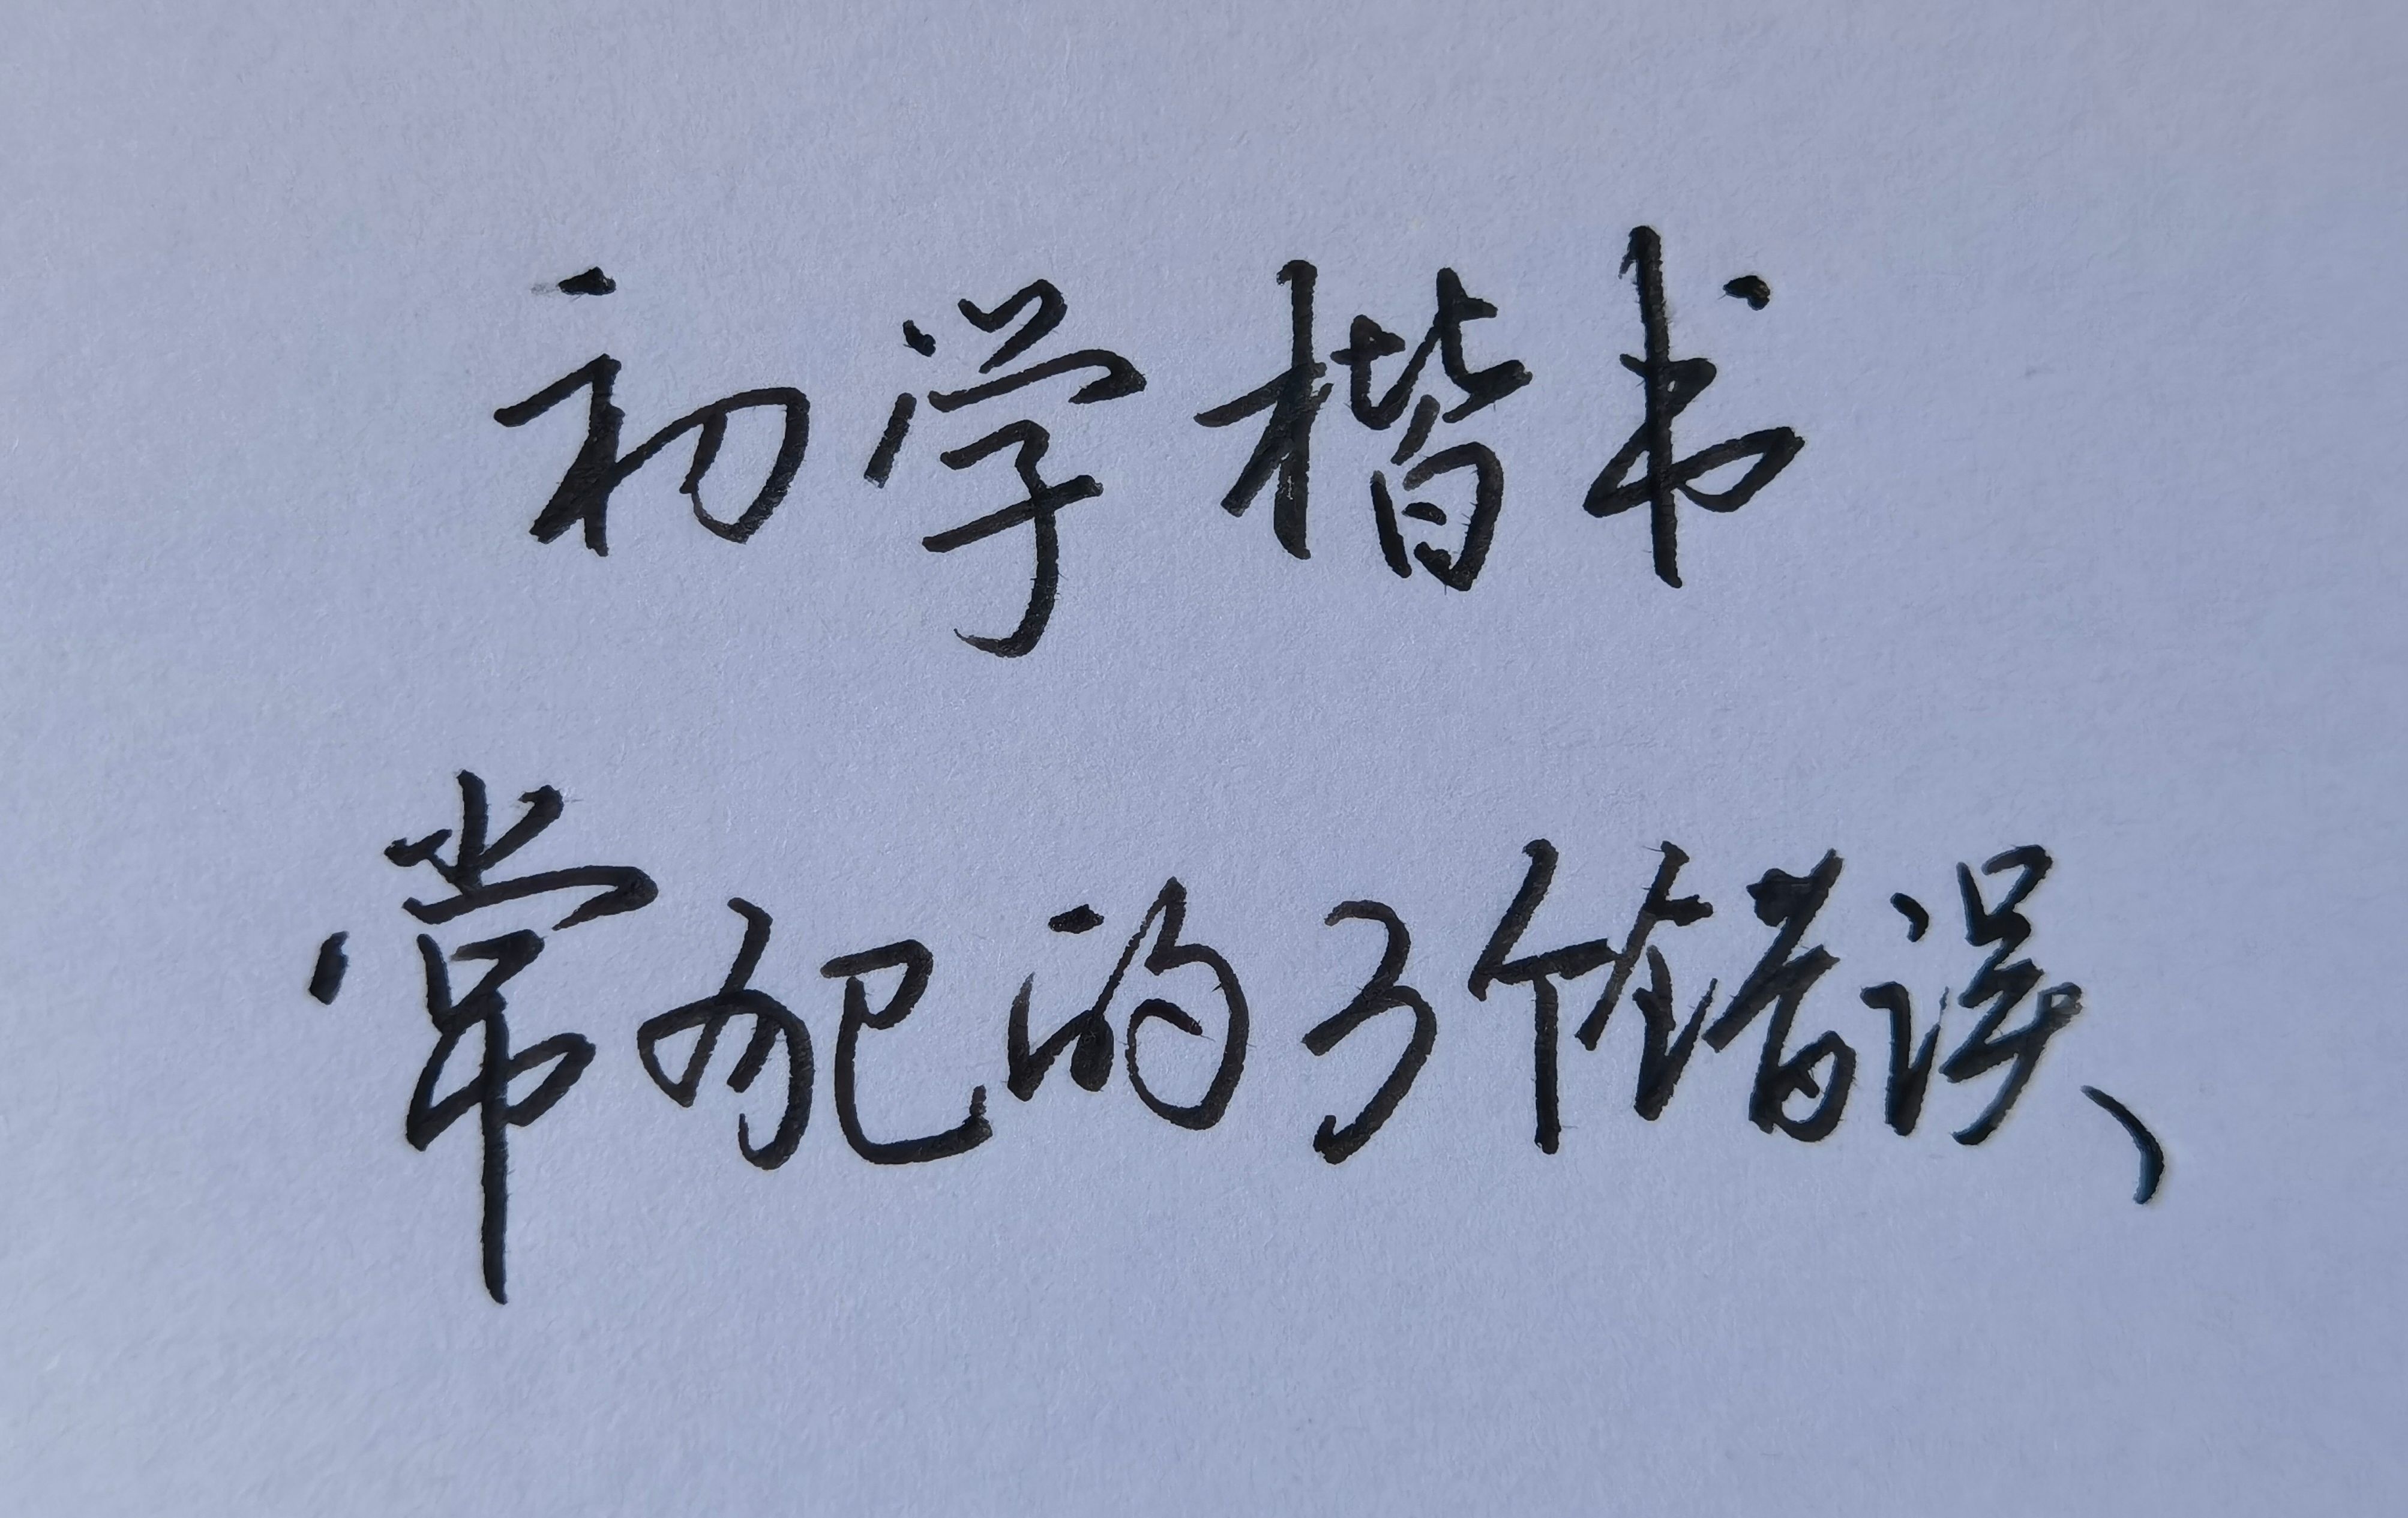 初学楷书
常犯的3个错误